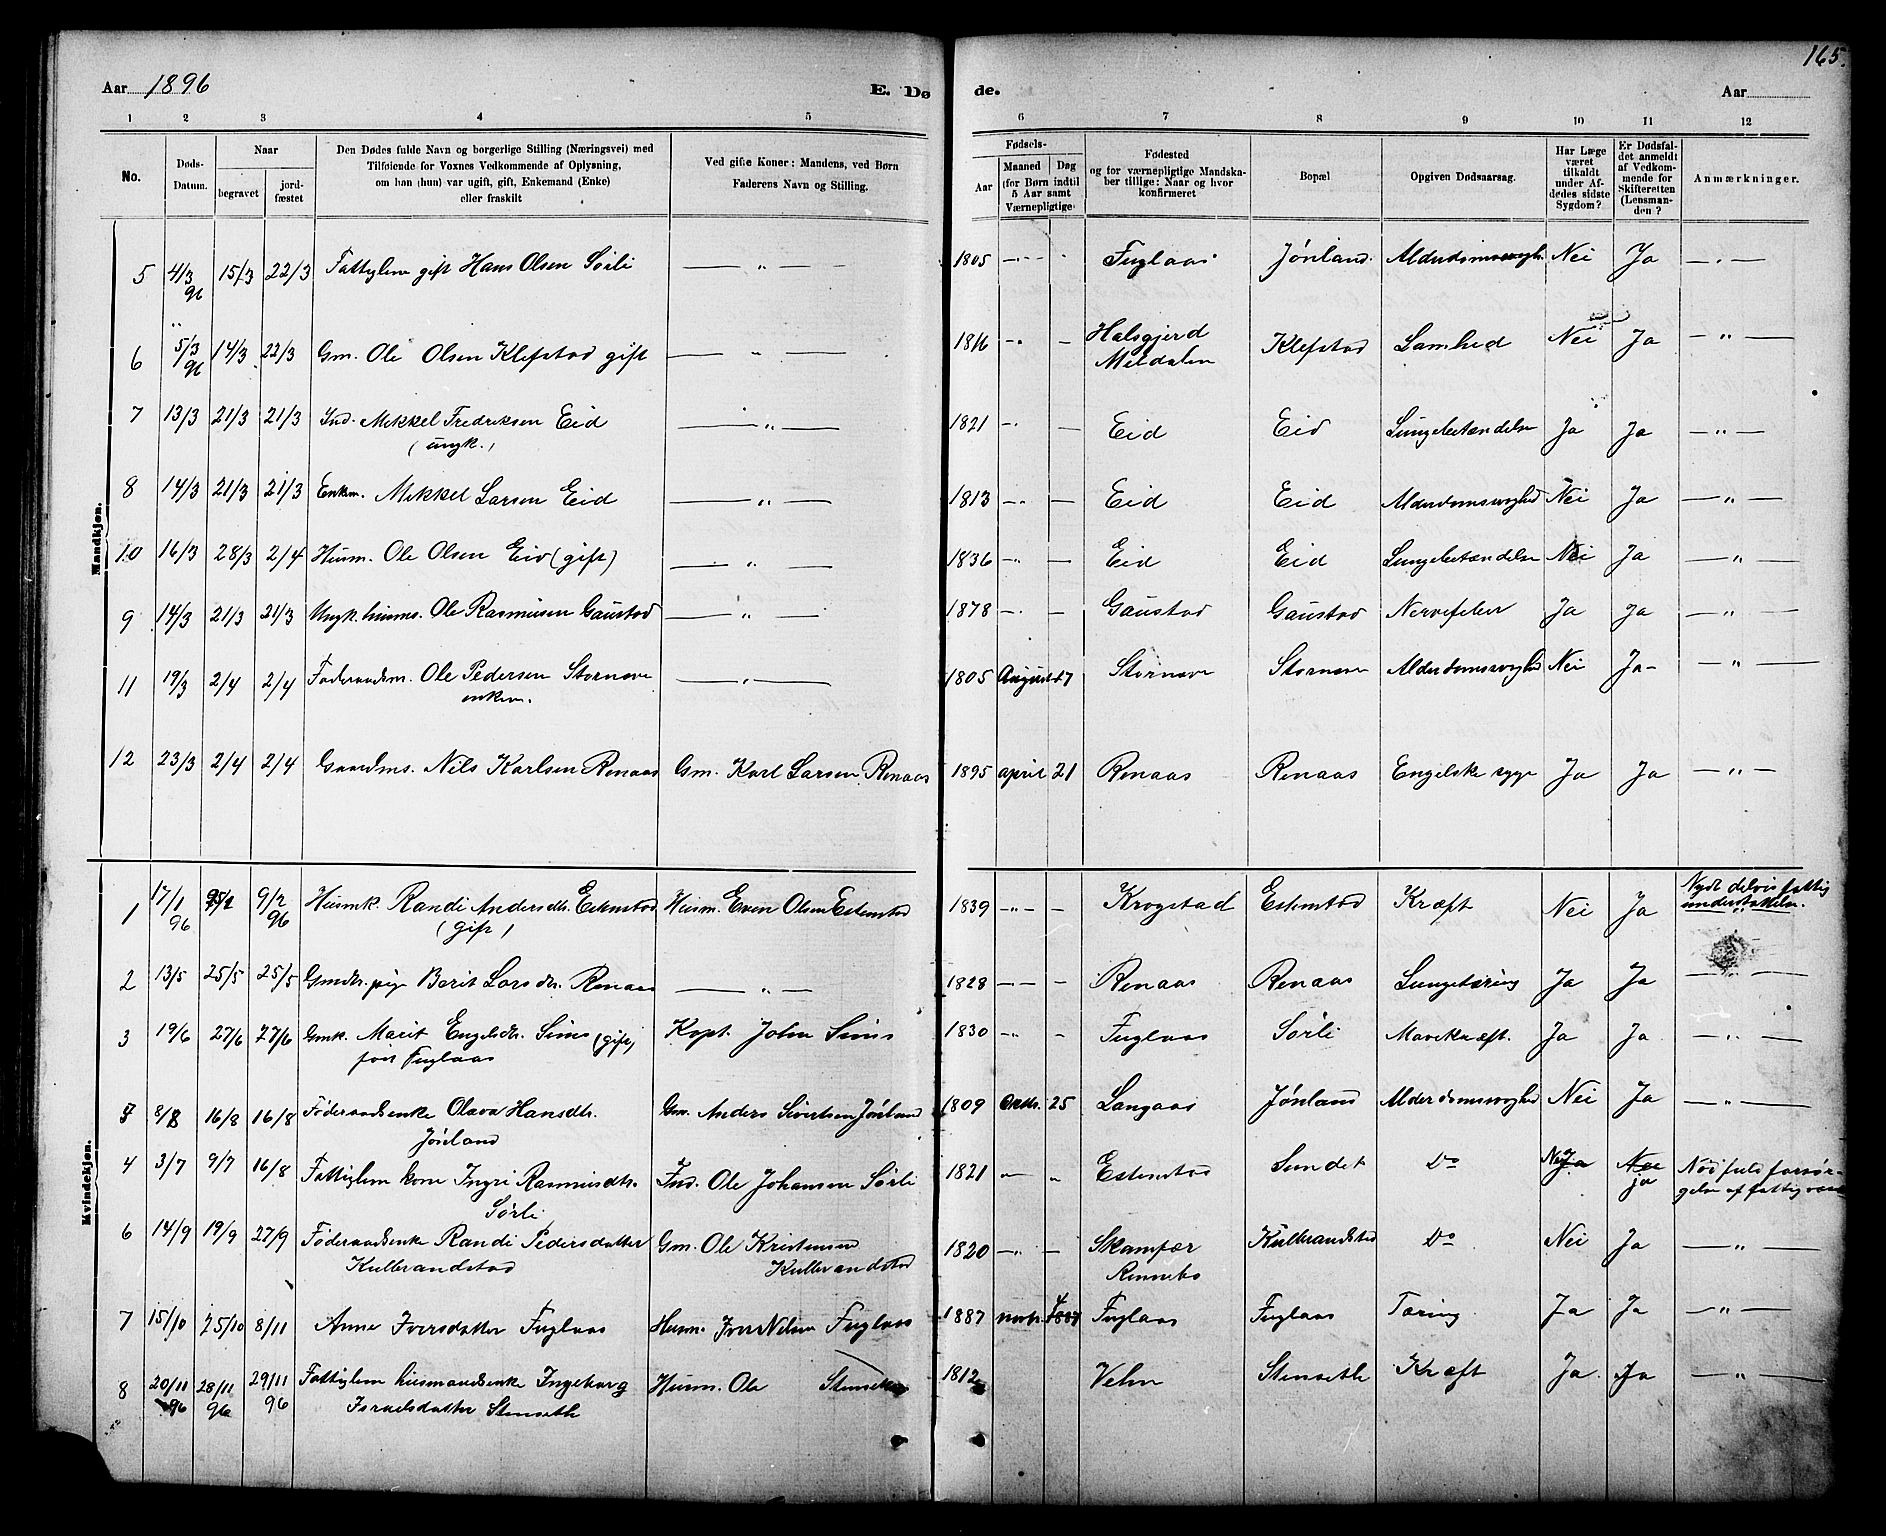 Aar 1896
E. Dø
de.
Aar
165.
1 2 3 4 5 6 7 8 9 10 11 12
No.
Døds-
Datum.
Naar
begravet
jord-
fæstet
Den Dødes fulde Navn og borgerlige Stilling (Næringsvei) med
Tilføiende for Voxnes Vedkommende af Oplysning,
om han (hun) var ugift, gift, Enkemand (Enke)
eller fraskilt
Ved gifte Koner: Mandens, ved Børn
Faderens Navn og Stilling.
Fødsels-
Aar
Maaned
Dag
(for Børn indtil
5 Aar samt
Værnepligtige)
Fødested
og for værnepligtige Mandska-
ber tillige: Naar og hvor
konfirmeret
Bopæl
Opgiven Dødsaarsag.
Har Læge
været
tilkaldt
under Af-
dødes sidste
Sygdom?
Er Dødsfal-
det anmeldt
af Vedkom-
mende for
Skifteretten
(Lensman-
den?
Anmærkninger.
Mandkjøn.
5 4/3 96 15/3 22/3 Fattiglem gift Hans Olsen Sørli — „ — 1805 Fuglaas Jønland. Alderdomssvagh. Nei Ja — „ —
6 5/3 96 14/3 22/3 Gm. Ole Olsen Klefstad gift — „ — 1816 Halsgjerd
Meldalen Klefstad Lamhed Nei Ja — „ —
7 13/3 21/3 21/3 Ind. Mikkel Fredriksen Eid
(ungk.) — „ — 1821 Eid Eid Lungebetændelse Ja Ja — „ —
8 14/3 21/3 21/3 Enkm. Mikkel Larsen Eid — „ — 1813 Eid Eid Alderdomssvaghed Nei Ja — „ —
10 16/3 28/3 2/4 Husm. Ole Olsen Eid (gift) — „ — 1836 Eid Eid Lungebetændelse Nei Ja — „ —
9 14/3 21/3 21/3 Ungk. husms. Ole Rasmusen Gaustad — „ — 1878 Gaustad Gaustad Nervefeber Ja Ja — „ —
11 19/3 2/4 2/4 Føderaadsm. Ole Pedersen Stornæve
enkem. — „ — 1805 August 17 Stornæve Stornæve Alderdomssvaghed Nei Ja — „ —
12 23/3 2/4 2/4 Gaardms. Nils Karlsen Renaas Gm. Karl Larsen Renaas 1895 april 21 Renaas Renaas Engelske syge Ja Ja — „ —
Kvindekjøn.
1 17/1 96 9/2 96 Husmk. Randi Andersdtr. Estenstad
(gift) Husm. Even Olsen Estenstad 1839 — „ — Krogstad Estenstad Kræft Nei Ja Nydt delvis fattig
understøttelse.
2 13/5 25/5 25/5 Gmdtr. pige Berit Larsdtr. Renaas — „ — 1828 — Renaas Renaas Lungetæring Ja Ja — „ —
3 19/6 27/6 27/6 Gmk. Marit Engelsdtr. Sims (gift)
Fuglaas Kapt. John Sims 1830 — „ — Fuglaas Sørli Mavekræft. Ja Ja — „ —
8/8 16/8 16/8 Føderaadsenke Olava Hansdtr.
Jønland Gm. Anders Sivertsen Jønland 1809 Oktb. 25 Langaas Jønland Alderdomssvaghed Nei Ja — „ —
4 3/7 9/7 16/8 Fattiglem kone Ingri Rasmusdtr.
Sørli Ind. Ole Johansen Sørli 1821 — „ Estenstad Sundet Do Nei Ja Nei
ja Nød fuld forsør-
gelse af fattigvæs
6 14/9 19/9 27/9 Føderaadsenke Randi Pedersdatter
Kulbrandstad Gm. Ole Kristensen
Kulbrandstad 1820 — „ — Skamfær
Rennebo Kulbrandstad Do Nei Ja — „ —
7 15/10 25/10 8/11 Anne Iversdatter Fuglaas Husm. Iver Nilsen Fuglaas 1887 novb. 1887 Fuglaas Fuglaas Tæring Ja Ja — „ —
8 20/11 96 28/11 96 29/11 96 Fattiglem husmandsenke Ingeborg
Israelsdatter Stenseth Husm. Ole Stenseth 1812 Velm Stenseth Kræft Ja Ja — „ —